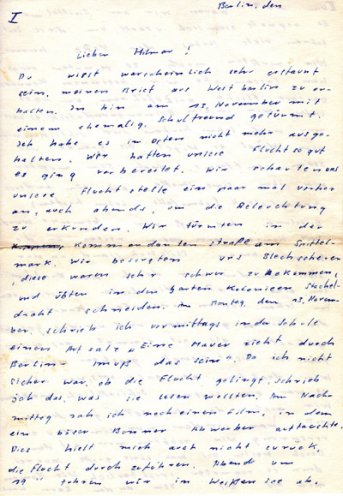 I
Berlin, den
Lieber Hilmar!
Du wirst warscheinlich sehr erstaunt
sein, meinen Brief aus West berlin zu er-
halten. Ich bin am 13. November mit
einem ehemalig. Schulfreund getürmt.
Ich habe es im Osten nicht mehr ausge-
halten. Wir hatten unsere Flucht so gut
es ging vorbereitet. Wir schauten uns
unsere Fluchtstelle ein paar mal vorher
an, auch abends, um die Beleuchtung
zu erkunden. Wir türmten in der
Kommandanten straße am Spittel-
markt. Wir besorgten uns Blechscheren
(diese waren sehr schwer zu bekommen)
und übten in den Garten Kolonieen Stachel-
draht schneiden. Am Montag, den 13. Novem-
ber, schrieb ich vormittags in der Schule
einen Aufsatz „Eine Mauer zieht durch
Berlin – muß das sein". Da ich nicht
sicher war, ob die Flucht gelingt, schrieb
ich das, was sie lesen wollten. Am Nach-
mittag sah ich noch einen Film, in dem
ein böser Bonner Abwerber auftauchte.
Dies hielt mich auch nicht zurück,
die Flucht durchzuführen. Abend um
fuhren wir in Weißensee ab.